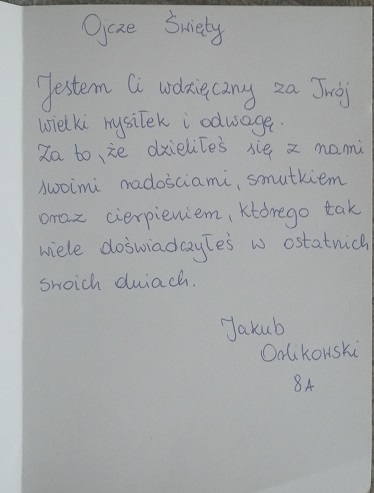 Ojcze Święty
Jestem Ci wdzięczny za Twój
wielki wysiłek i odwagę.
Za to, że dzieliłeś się z nami
swoimi radościami, smutkiem
oraz cierpieniem, którego tak
wiele doświadczyłeś w ostatnich
swoich dniach.
Jakub
Orlikowski
8A